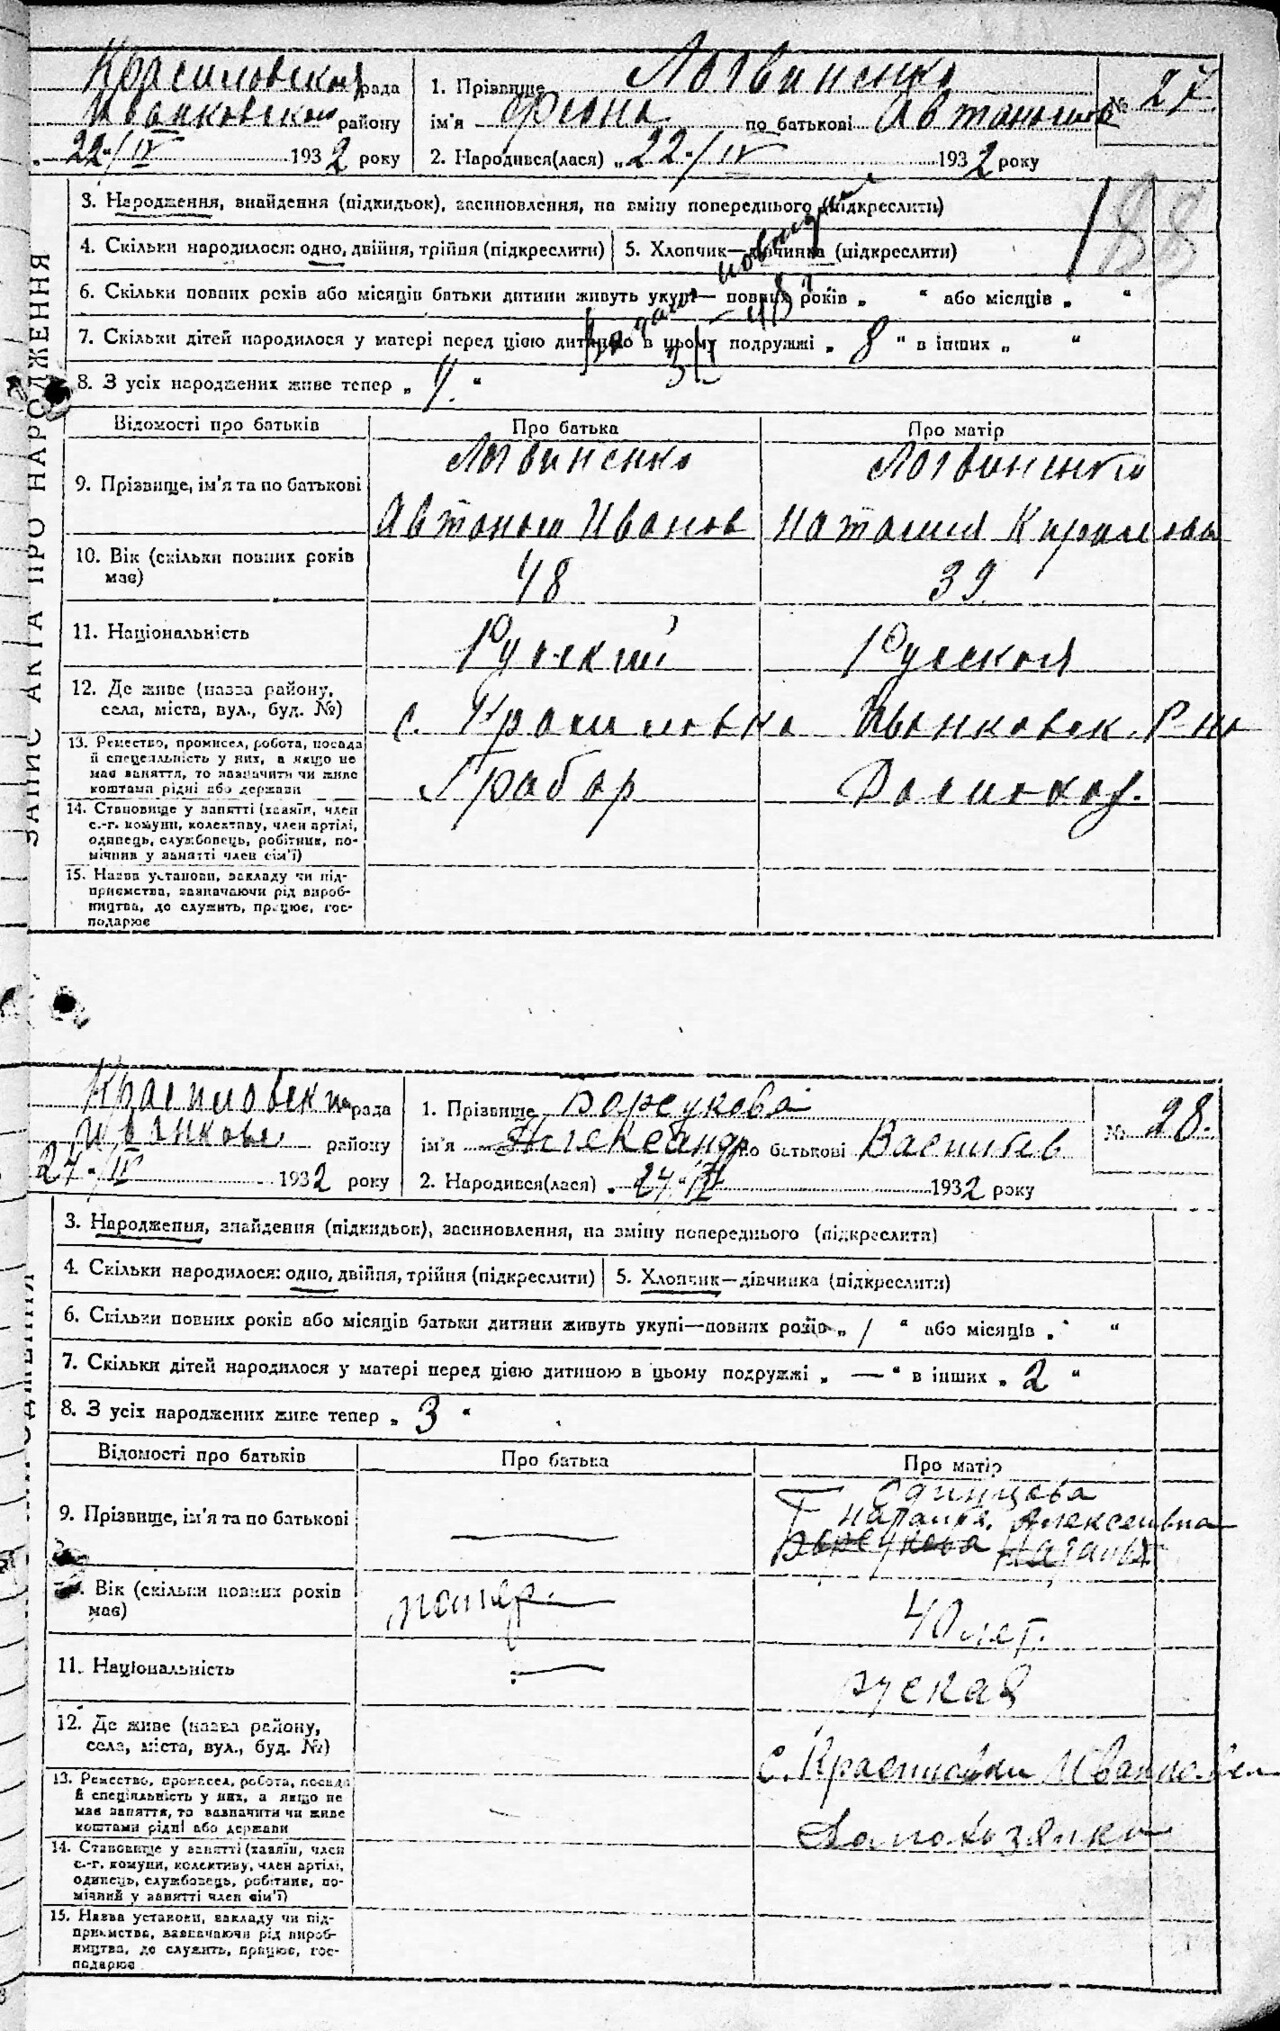 ЗАПИС АКТА ПРО НАРОДЖЕННЯ
Красиловская рада
Иванковском району
22/IV 1932 року
1. Прізвище Логвиненко
ім'я Феона по батькові Автономов
№ 27
2. Народився(лася) „22/IV 1932 року
3. Народження, знайдення (підкидьок), засиновлення, на зміну попереднього (підкреслити)
188
4. Скільки народилося: одно, двійня, трійня (підкреслити) 5. Хлопчик—дівчинка (підкреслити)
6. Скільки повних років або місяців батьки дитини живуть укупі— повних років „ “ або місяців „ “
7. Скільки дітей народилося у матері перед цією дитиною в цьому подружжі „ 8 “ в інших „ “
8. З усіх народжених живе тепер „ 4. “
Відомості про батьків Про батька Про матір
9. Прізвище, ім'я та по батькові
Логвиненко Логвиненко
Автоном Иванов Наталия
10. Вік (скільки повних років має)
48 39
11. Національність Руский Руская
12. Де живе (назва району, села, міста, вул., буд. №)
с. Красиловка Иванковск. Р-на
13. Ремество, промисел, робота, посада
й спеціяльність у них, а якщо не
має заняття, то зазначити чи живе
коштами рідні або держави
Грабар
14. Становище у занятті (хазяїн, член
с.-г. комуни, колективу, член артілі,
одинець, службовець, робітник, по-
мічник у занятті член сім'ї)
15. Назва установи, закладу чи під-
приємства, зазначаючи рід вироб-
ництва, де служить, працює, гос-
подарює
Красиловск рада
Иванковс. району
24/IV 1932 року
1. Прізвище Борсукова
ім'я Александр по батькові Васильев
№ 28.
2. Народився(лася) „ 24/IV 1932 року
3. Народження, знайдення (підкидьок), засиновлення, на зміну попереднього (підкреслити)
4. Скільки народилося: одно, двійня, трійня (підкреслити) 5. Хлопчик—дівчинка (підкреслити)
6. Скільки повних років або місяців батьки дитини живуть укупі—повних років „ / “ або місяців „ “
7. Скільки дітей народилося у матері перед цією дитиною в цьому подружжі „ — “ в інших „ 2 “
8. З усіх народжених живе тепер „ 3 “
Відомості про батьків Про батька Про матір
Одинцова
9. Прізвище, ім'я та по батькові — Наталия Алексеивна
Борсукова Наталия
Вік (скільки повних років має)
помер 40 лет.
11. Національність — руская
12. Де живе (назва району, села, міста, вул., буд. №)
с. Красиловки Иванковск
13. Ремество, промисел, робота, посада
й спеціяльність у них, а якщо не
має заняття, то зазначити чи живе
коштами рідні або держави
Домохозяйка
14. Становище у занятті (хазяїн, член
с.-г. комуни, колективу, член артілі,
одинець, службовець, робітник, по-
мічний у занятті член сім'ї)
15. Назва установи, закладу чи під-
приємства, зазначаючи рід вироб-
ництва, де служить, працює, гос-
подарює